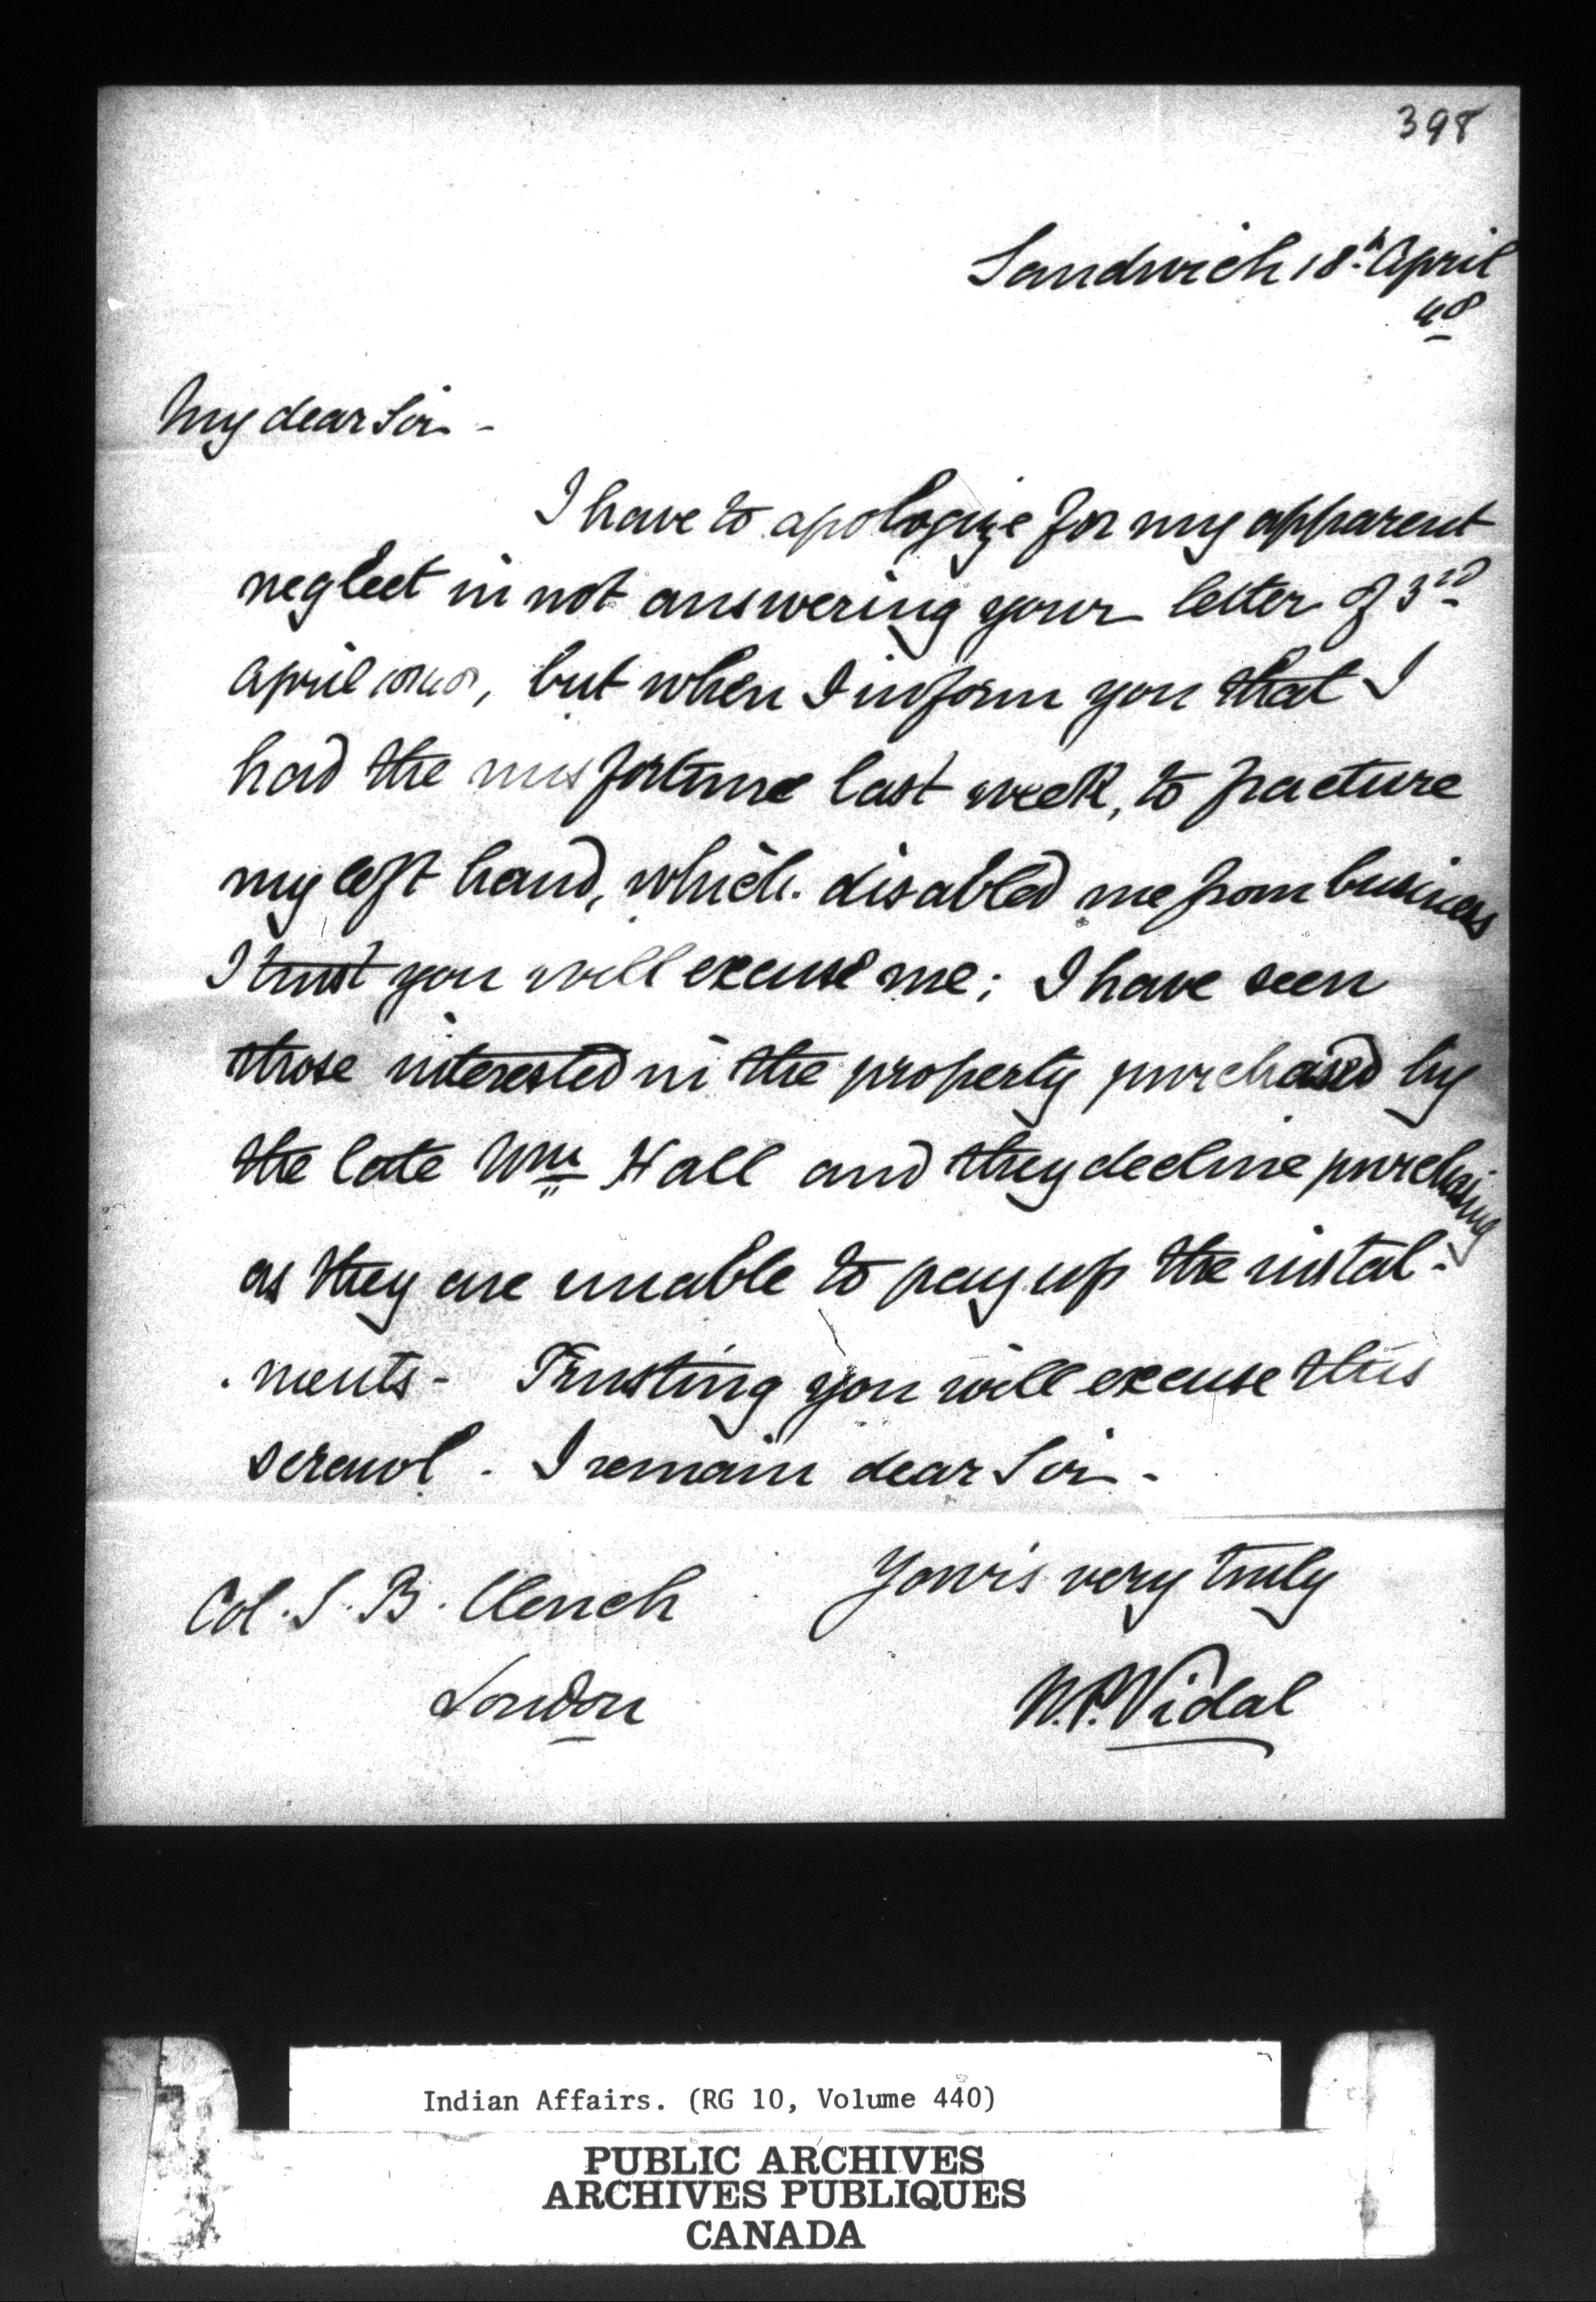 398
Sandwich 18th April
48
My dear Sir -
I have to apologize for my apparent
neglect in not answering your letter of 3rd
April 1848, but when I inform you that I
had the misfortune last week, to fracture
my left hand, which disabled me from business
I trust you will excuse me; I have seen
those interested in the property purchased by
the late Wm Hall and they decline purchasing
as they are unable to pay up the instal-
-ments - Trusting you will excuse this
scrawl. I remain dear Sir -
Your's very truly
Col. J. B. Clench
London
W.P. Vidal
Indian Affairs. (RG 10, Volume 440)
PUBLIC ARCHIVES
ARCHIVES PUBLIQUES
CANADA